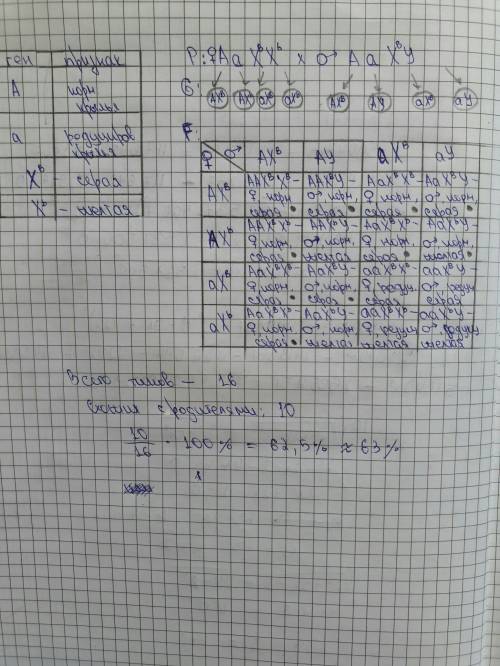 ген признак
A норм крылья
a редуциров крылья
Xᴮ - серая
Xᵇ - желтая
P: ♀ Aa XᴮXᵇ x ♂ Aa XᴮY
G: AXᴮ AXᵇ aXᴮ aXᵇ AXᴮ AY aXᴮ aY
F:
♀ ♂ AXᴮ AY aXᴮ aY
AXᴮ AAXᴮXᴮ- ♀ норм, серая • AAXᴮY- ♂ норм, серая • AaXᴮXᴮ- ♀ норм, серая • AaXᴮY- ♂ норм, серая •
AXᵇ AAXᴮXᵇ- ♀ норм, серая • AAXᵇY- ♂ норм, желтая AaXᴮXᵇ- ♀ норм, серая • AaXᵇY- ♂ норм, желтая
aXᴮ AaXᴮXᴮ- ♀ норм, серая • AaXᴮY- ♂ норм, серая • aaXᴮXᴮ- ♀ редуц, серая aaXᴮY- ♂ редуц, серая
aXᵇ AaXᴮXᵇ- ♀ норм, серая • AaXᵇY- ♂ норм желтая aaXᴮXᵇ- ♀ редуц желтая aaXᵇY- ♂ редуц желтая
Всего типов - 16
с родителями: 10
10/16 · 100% = 62,5% ≈ 63%